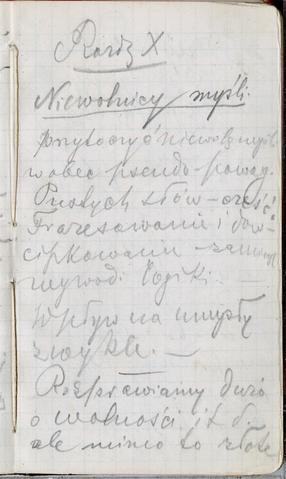 Rozdz X.
Niewolnicy myśli.
przytoczyć niewolę myśli
wobec pseudo-powag.
Pustych słów - cześć
Frazesowanie i dow-
cipkowanie - zamiast
wywodu logiki. —
Wpływ na umysły
zwykłe. —
Rozprawiamy dużo
o wolności i t. d.
ale mimo to złote